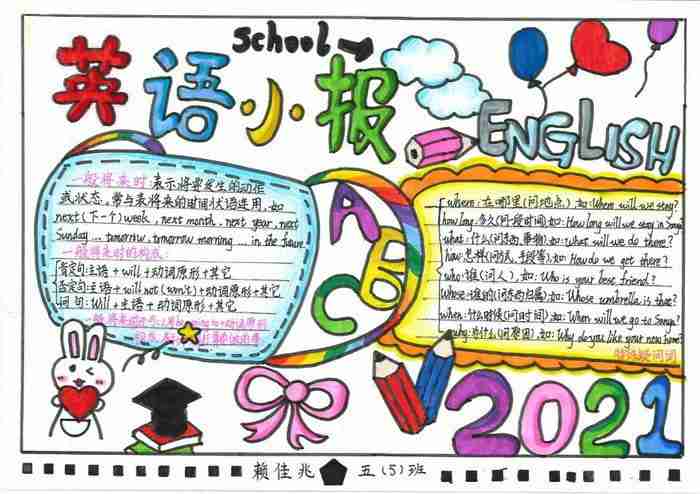 school
英语小报
ENGLISH
一般将来时:表示将要发生的动作
或状态,常与表将来的时间状语连用,如
next(下一个)week, next month, next year, next
Sunday ... tomorrow, tomorrow morning ... in the future
一般将来时的构成:
肯定句:主语+will+动词原形+其它
否定句:主语+will not(won't)+动词原形+其它
问句:Will+主语+动词原形+其它
ABC
where:在哪里(问地点),如:Where will we stay?
how long:多久(问一段时间),如:How long will we stay in Sanya?
what:什么(问东西,事物),如:What will we do there?
how:怎样(问方式,手段等),如:How do we get there?
who:谁(问人),如:Who is your best friend?
whose:谁的(问东西的归属),如:Whose umbrella is that?
when:什么时候(问时间),如:When will we go to Sanya?
why:为什么(问原因),如:Why do you like your new home?
特殊疑问词
2021
赖佳兆 五(5)班